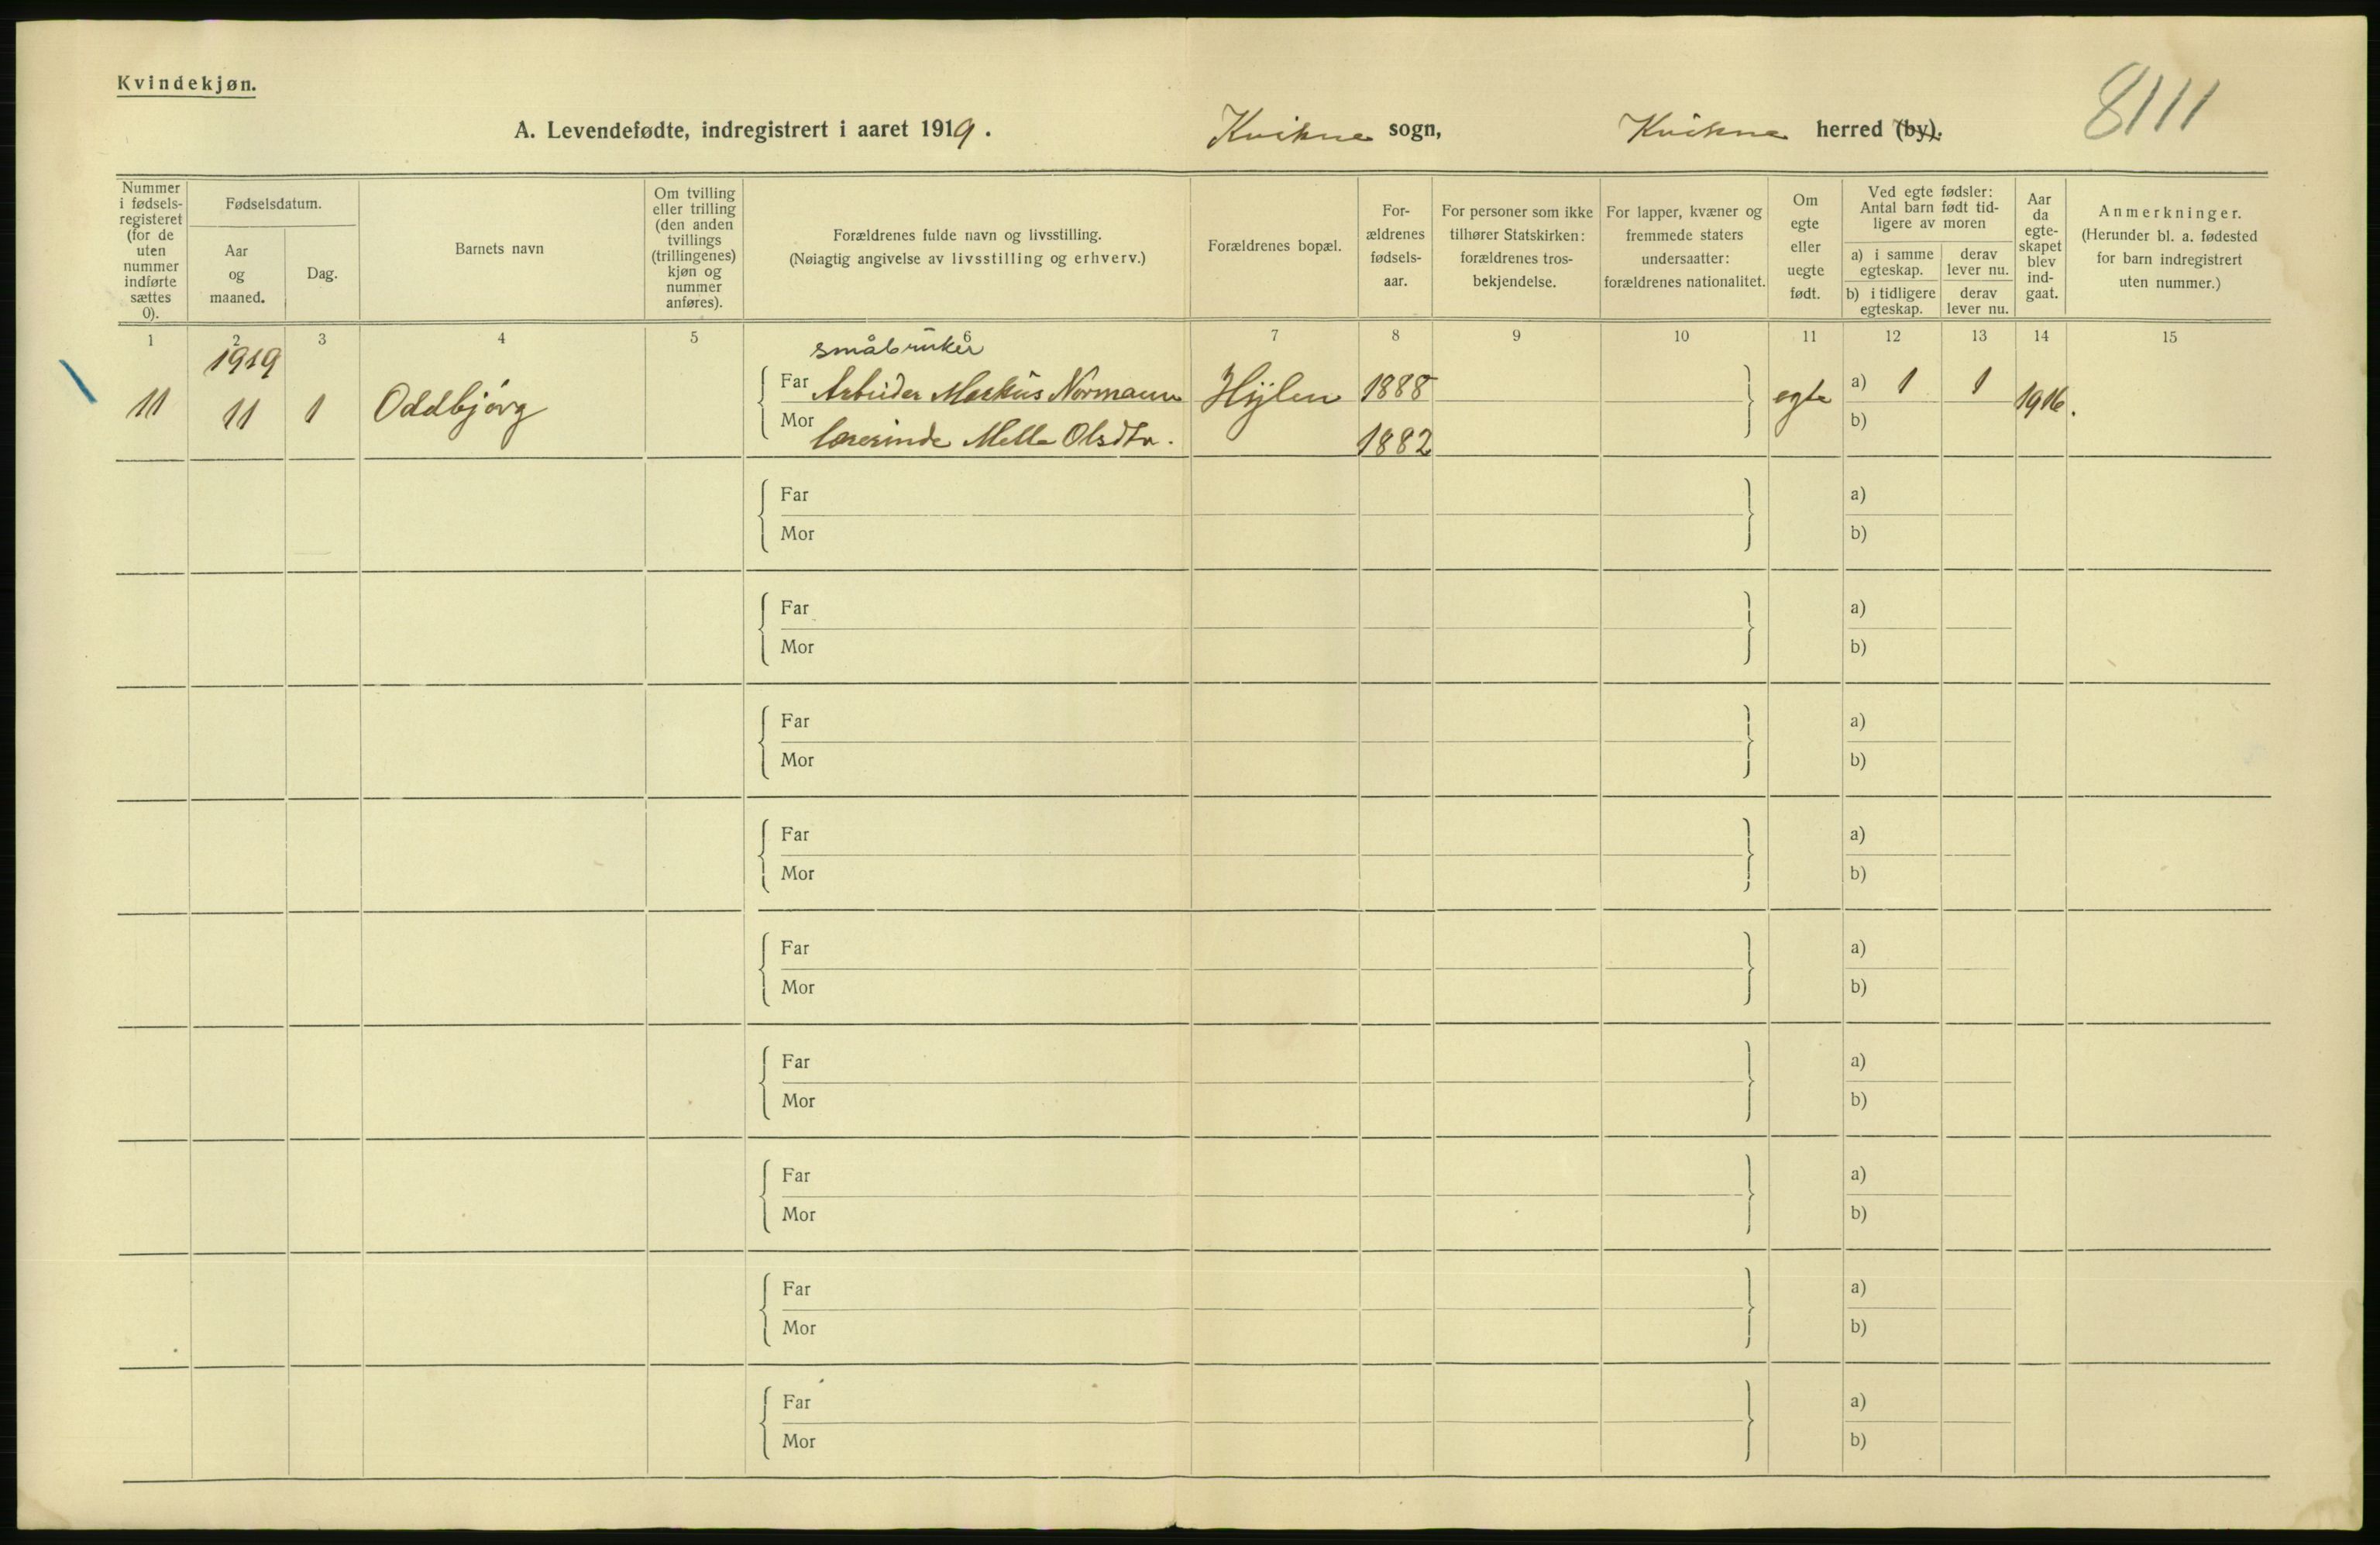 Kvindekjøn.
8111
A. Levendefødte, indregistrert i aaret 1919. Kvikne sogn, Kvikne herred (by).
Nummer i fødsels-registeret (for de uten nummer indførte sættes 0).
Fødselsdatum.
Aar og maaned.
Dag.
Barnets navn
Om tvilling eller trilling (den anden tvillings (trillingenes) kjøn og nummer anføres).
Forældrenes fulde navn og livsstilling.
(Nøiagtig angivelse av livsstilling og erhverv.)
Forældrenes bopæl.
For-ældrenes fødsels-aar.
For personer som ikke tilhører Statskirken: forældrenes tros-bekjendelse.
For lapper, kvæner og fremmede staters undersaatter: forældrenes nationalitet.
Om egte eller uegte født.
Ved egte fødsler: Antal barn født tid-ligere av moren
a) i samme egteskap.
derav lever nu.
b) i tidligere egteskap.
derav lever nu.
Aar da egte-skapet blev ind-gaat.
Anmerkninger.
(Herunder bl. a. fødested for barn indregistrert uten nummer.)
1 2 3 4 5 6 7 8 9 10 11 12 13 14 15
1919 småbruker
11 11 1 Oddbjørg Far Arbeider Markus Normann Hylen 1888 egte a) 1 1 1916.
Mor lærerinde Olsdtr. 1882 b)
Far a)
Mor b)
Far a)
Mor b)
Far a)
Mor b)
Far a)
Mor b)
Far a)
Mor b)
Far a)
Mor b)
Far a)
Mor b)
Far a)
Mor b)
Far a)
Mor b)